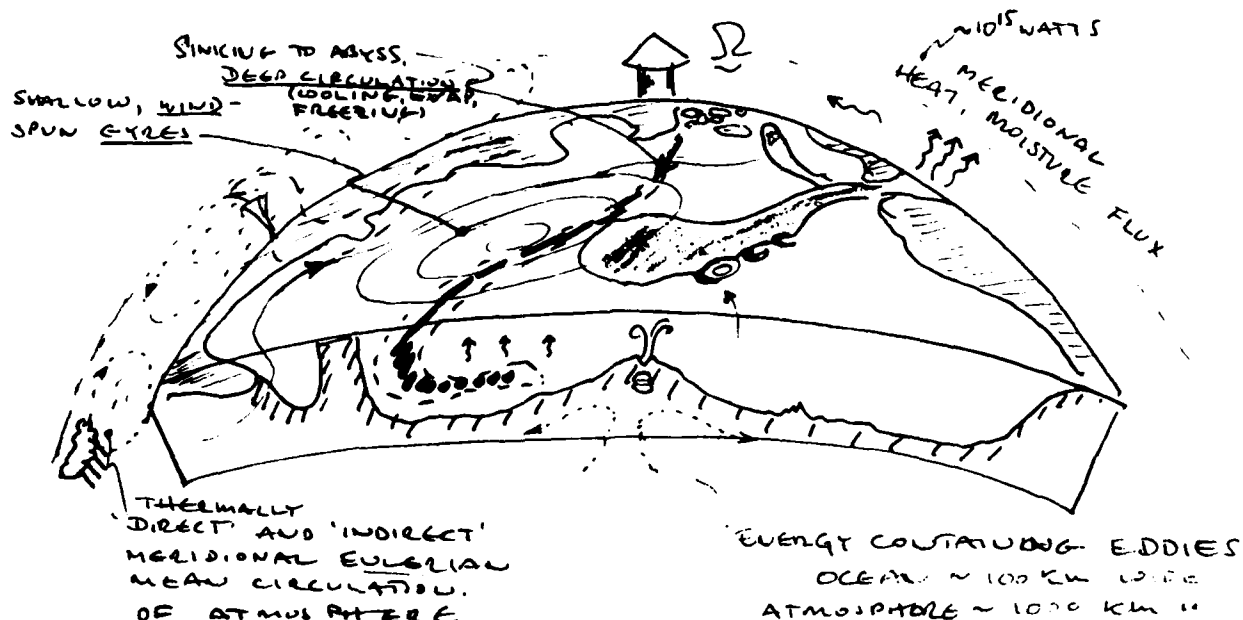 SINKING TO ABYSS,
DEEP CIRCULATION
(COOLING, EVAP,
FREEZING)
SHALLOW, WIND-
SPUN GYRES
Ω
~10¹⁵ WATTS
MERIDIONAL
HEAT, MOISTURE
FLUX
THERMALLY
'DIRECT' AND 'INDIRECT'
MERIDIONAL EULERIAN
MEAN CIRCULATION.
OF ATMOSPHERE
ENERGY CONTAINING EDDIES
OCEAN ~ 100 KM WIDE
ATMOSPHERE ~ 1000 KM "